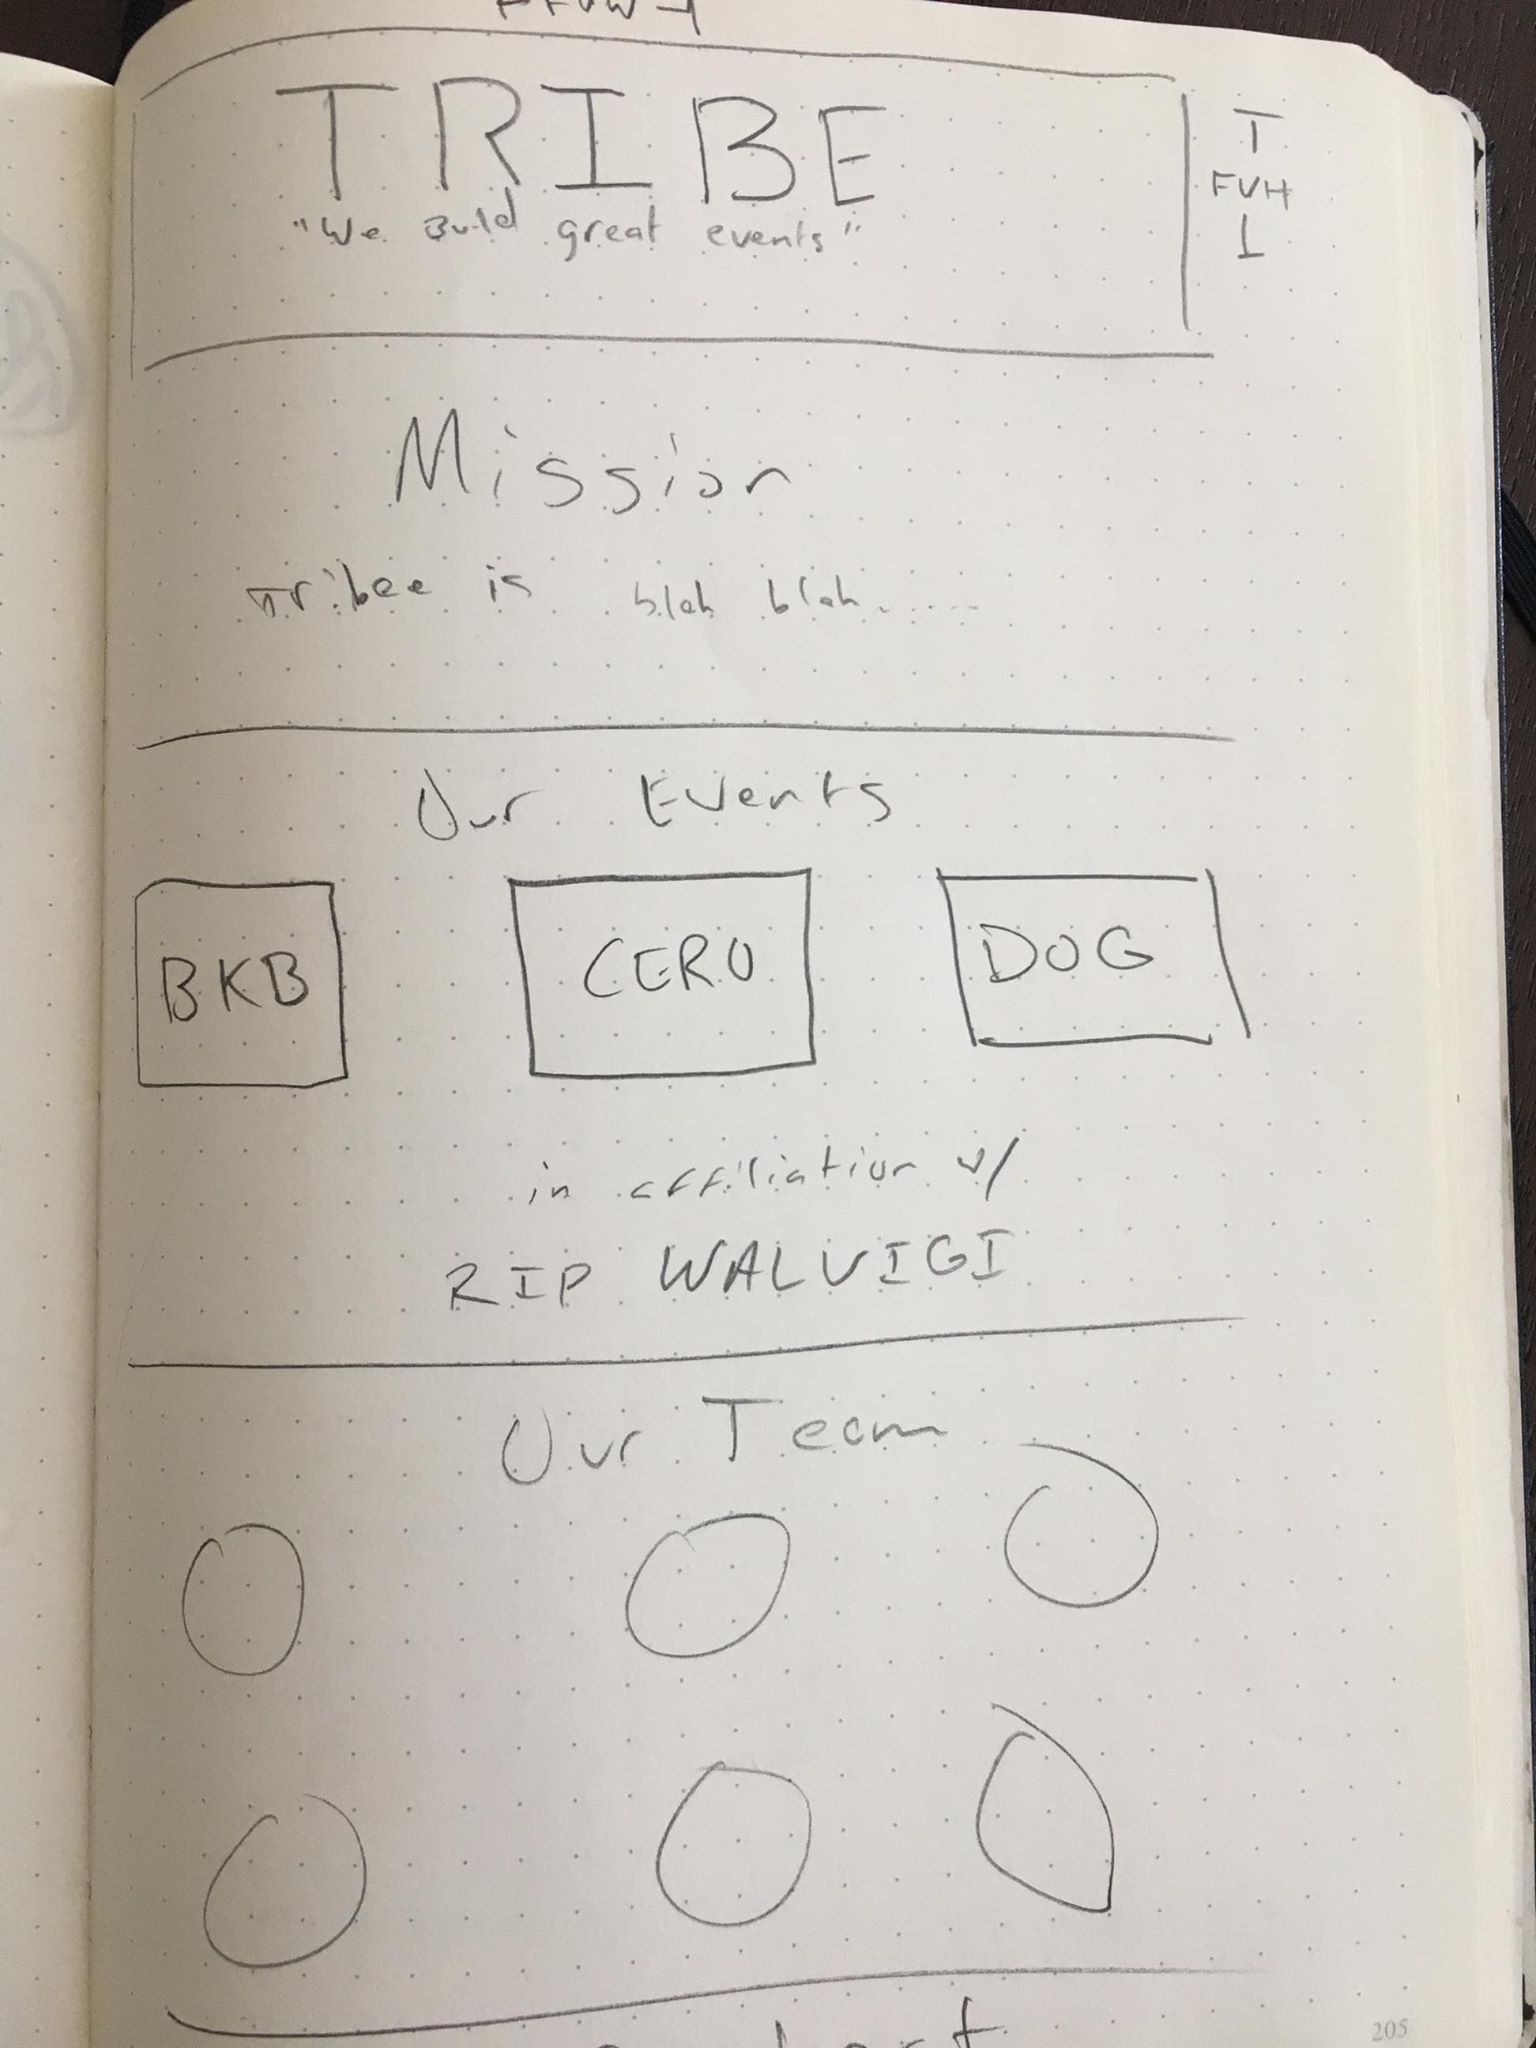 TRIBE
T
FVH
"We Build great events"
Mission
Tribee is blah blah......
Our Events
BKB CERO DOG
in affiliation w/
RIP WALUIGI
Our Team
205